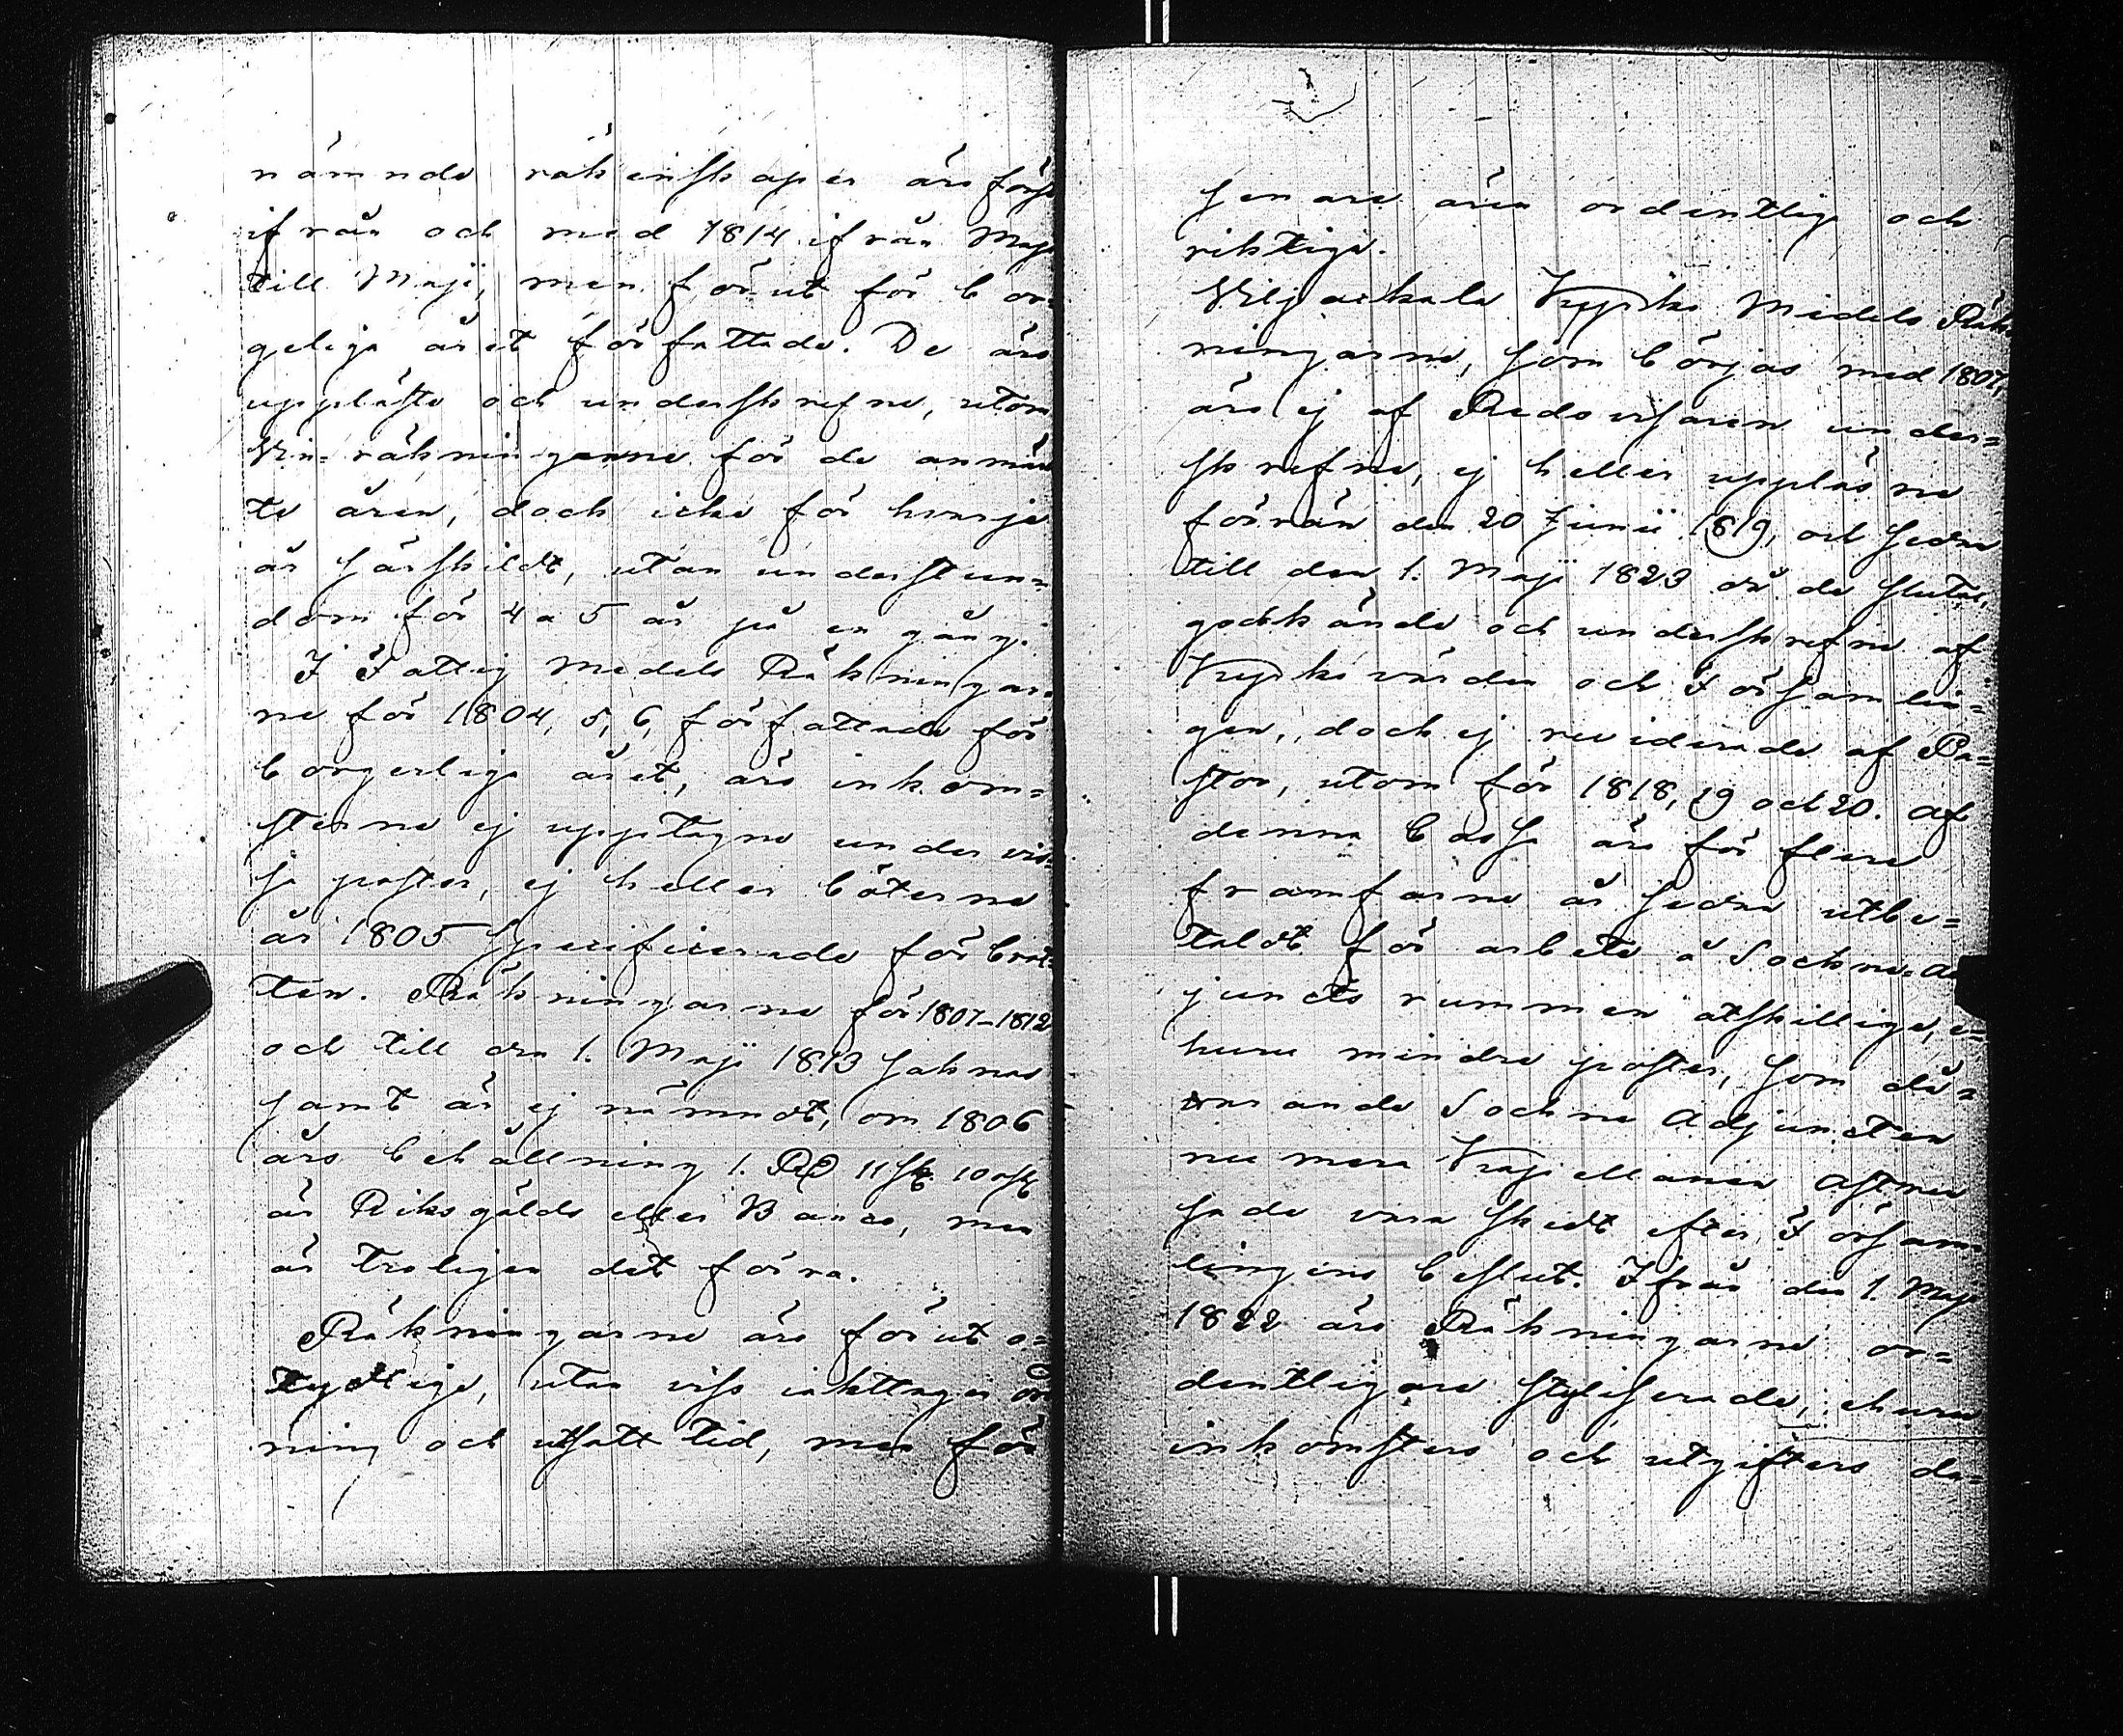 nämnde räkenskaper äro först
ifrån och med 1814 ifrån Maji
till Maji, men förut för bor=
geliga året författade. De äro
uppläste och underskrefne, utom
Vin-räkningarne för de anmärk
te åren, dock icke för hvarje
år särskildt, utan understun=
dom för 4 a 5 år på en gång.
I Fattig Medels Räkningar=
ne för 1804, 5, 6, författade för
borgerliga året, äro inkom=
sterne ej upptagne under vis=
sa poster, ej heller böterne
år 1805 Specificerade för brot=
ten. Räkningarne för 1807-1812
och till den 1. Maji 1813 saknas
samt är ej nämndt, om 1806
års behållning 1. RD 11 sk. 10 rst
är Riksgälds eller Banco, men
är troligen det förra.
Räkningarne äro förut o=
tydlige, utan viss iakttagen ord
ning och utsatt tid, men för
senare åren ordentlige och
riktige.
Viljackala Kyrko Medels Räk
ningarne, som börjas med 1807,
äro ej af Redovisaren under=
skrefne, ej heller uppläsne
förrän den 20 Junii 1819, och sedan
till den 1. Maji 1823 då de slutas,
godkände och underskrefne af
Kyrkovärden och Församlin=
gen, dock ej reviderade af Pa=
stor, utom för 1818, 19 och 20. Af
denna Cassa äro för flere
framfarne år sedan utbe=
taldt för arbete å Sockne-Ad
juncts rummen åtskillige, e=
huru mindre poster, som då=
varande Sockne Adjuncten
numera Kapellanen
sade vara skedt efter Försam=
lingens beslut. Ifrån den 1. Maji
1822 äro Räkningarne or=
dentligare stylliserade, ehuru
inkomsters och utgifters da=